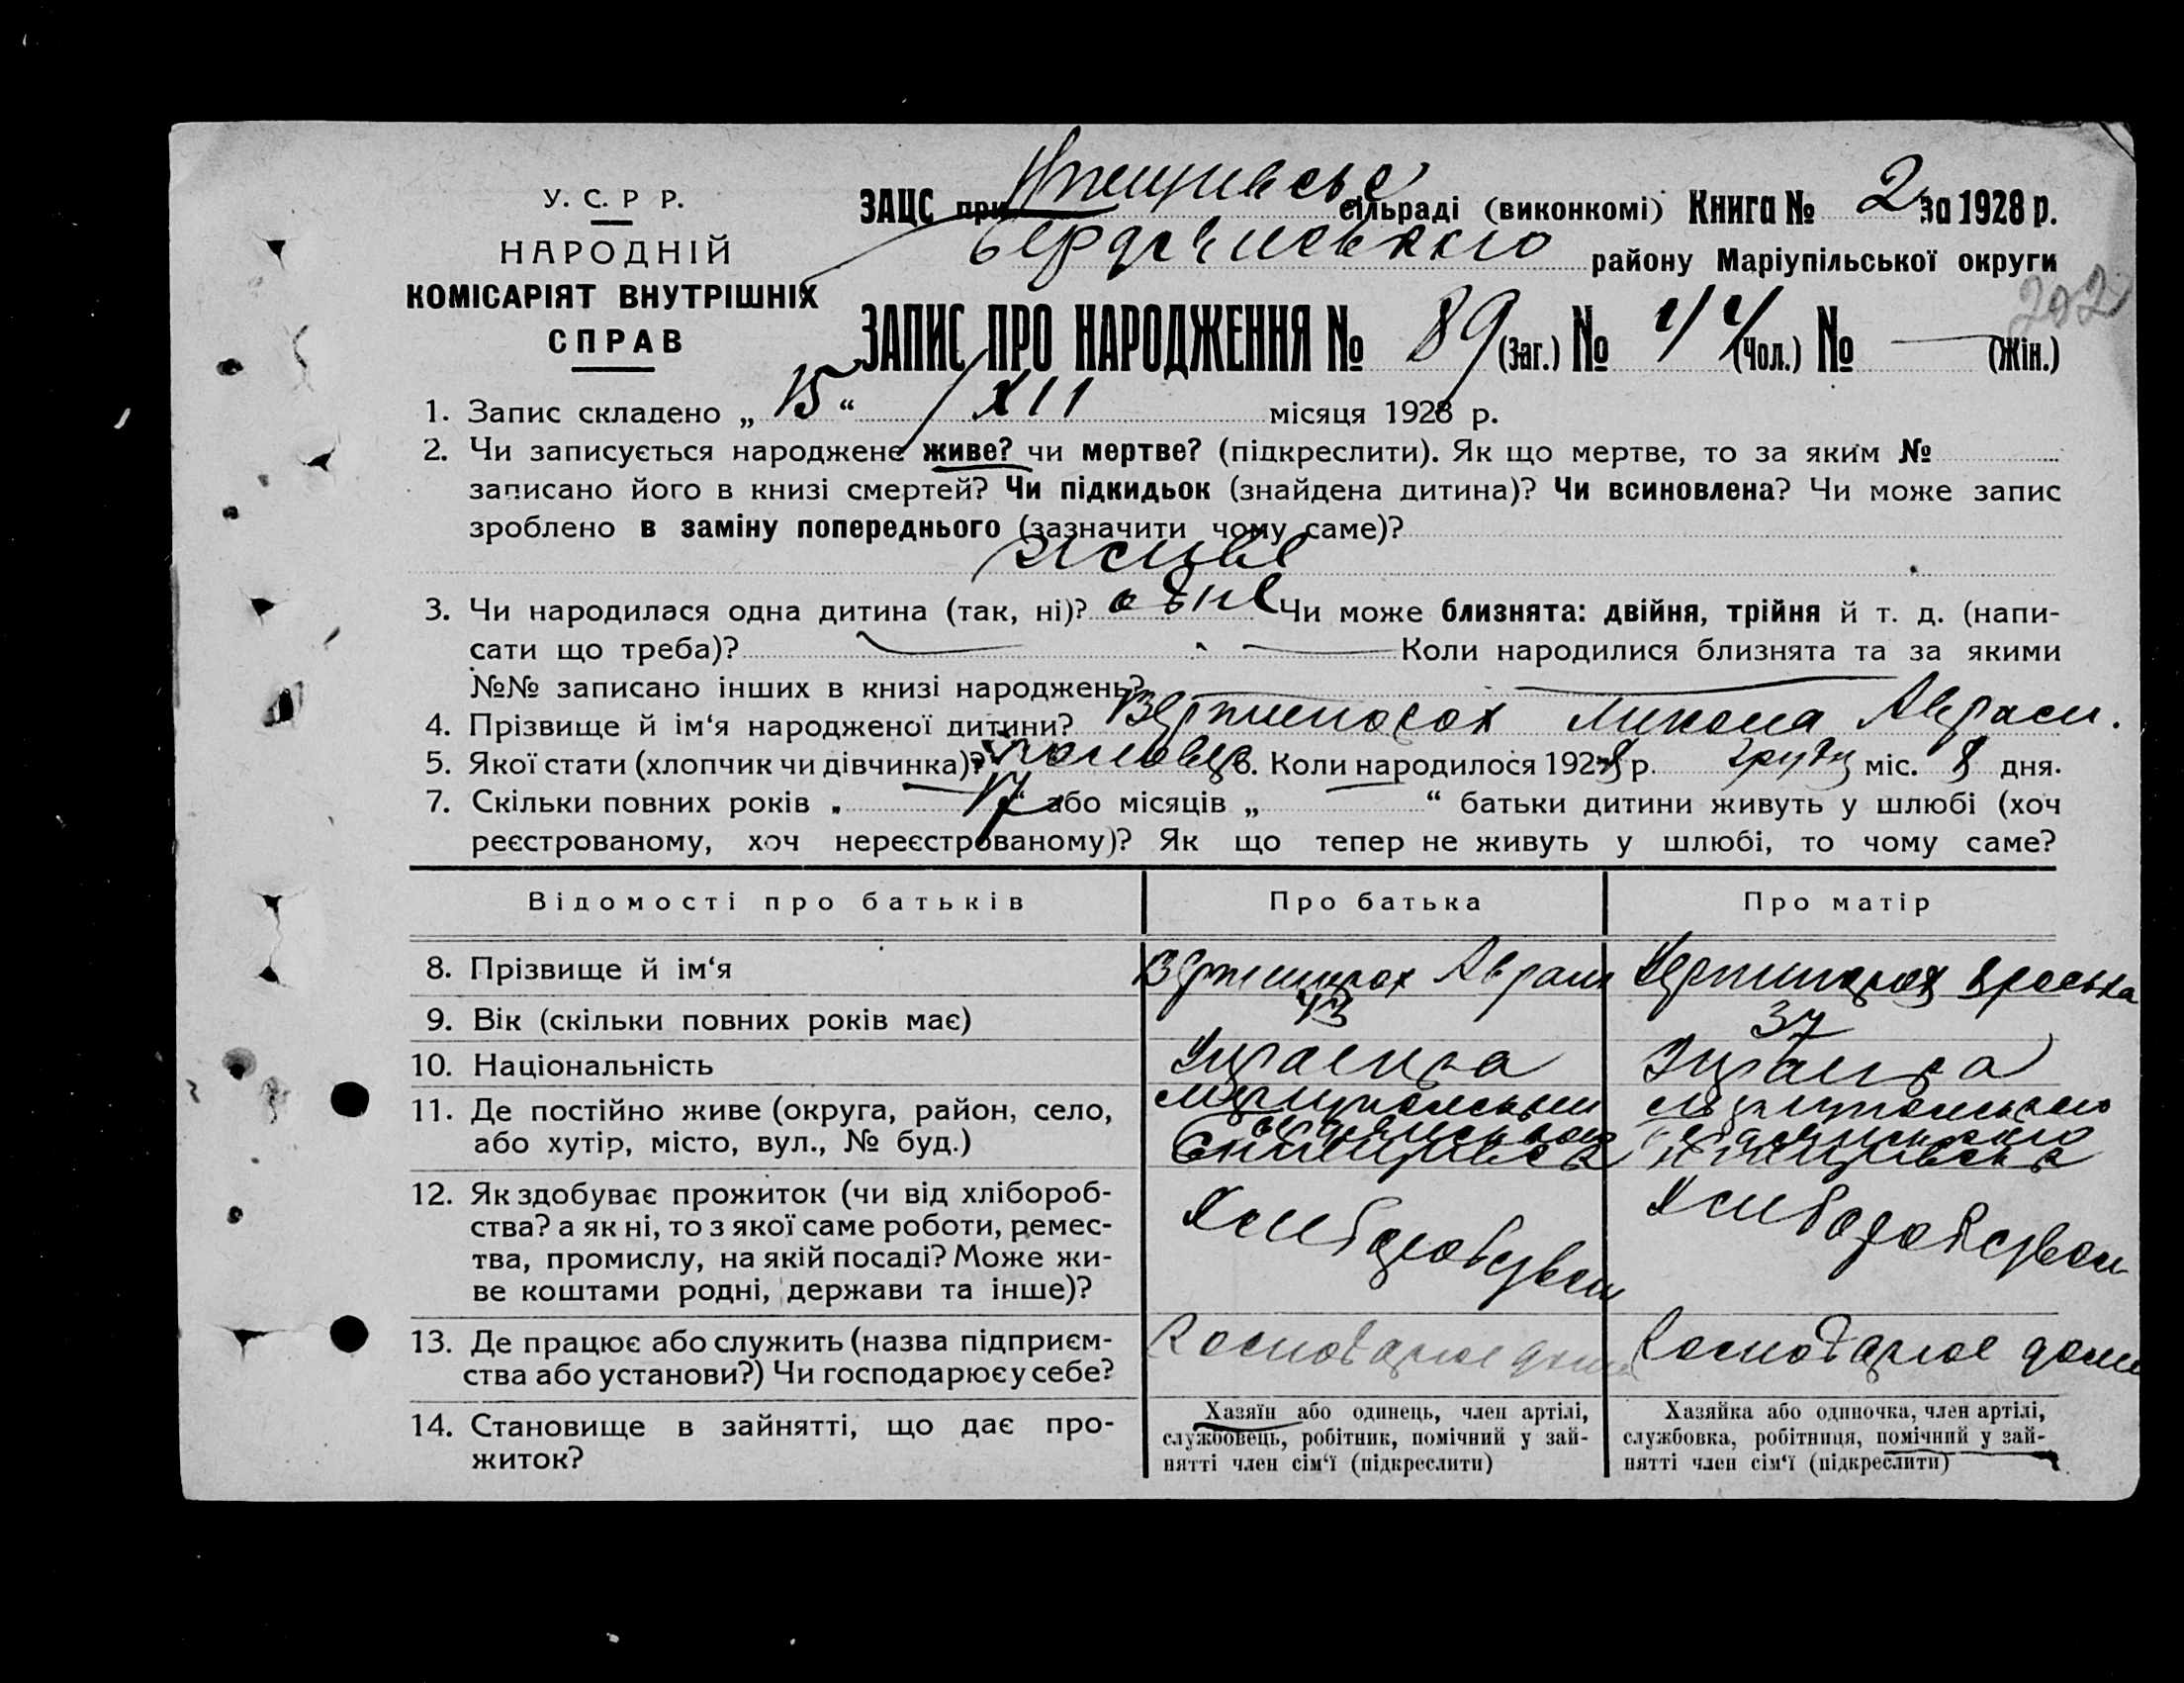 У. С. Р Р.
НАРОДНІЙ
КОМІСАРІЯТ ВНУТРІШНІХ
СПРАВ
ЗАЦС при сільраді (виконкомі) Книга № 2 за 1928 р.
Бердянського району Маріупільської округи
202
ЗАПИС ПРО НАРОДЖЕННЯ № 89 (Заг.) № 44 (Чол.) № — (Жін.)
1. Запис складено „ 15 “ XII місяця 1928 р.
2. Чи записується народжене живе? чи мертве? (підкреслити). Як що мертве, то за яким №
записано його в книзі смертей? Чи підкидьок (знайдена дитина)? Чи всиновлена? Чи може запис
зроблено в заміну попереднього (зазначити чому саме)?
живе
3. Чи народилася одна дитина (так, ні)? одне Чи може близнята: двійня, трійня й т. д. (напи-
сати що треба)? — Коли народилися близнята та за якими
№№ записано інших в книзі народжень? —
4. Прізвище й ім‘я народженої дитини? Микола Аврам.
5. Якої стати (хлопчик чи дівчинка)? 6. Коли народилося 1928 р. грудн міс. 8 дня.
7. Скільки повних років „ 17 “ або місяців „ “ батьки дитини живуть у шлюбі (хоч
реєстрованому, хоч нереєстрованому)? Як що тепер не живуть у шлюбі, то чому саме?
Відомості про батьків Про батька Про матір
8. Прізвище й ім‘я Аврам
9. Вік (скільки повних років має) 43 37
10. Національність Украінка Украінка
11. Де постійно живе (округа, район, село,
або хутір, місто, вул., № буд.)
12. Як здобуває прожиток (чи від хлібороб-
ства? а як ні, то з якої саме роботи, ремес-
тва, промислу, на якій посаді? Може жи-
ве коштами родні, держави та інше)?
Хлиборобством Хлиборобством
13. Де працює або служить (назва підприєм-
ства або установи?) Чи господарює у себе?
Господарює дома Господарює дома
14. Становище в зайнятті, що дає про-
житок?
Хазяїн або одинець, член артілі,
службовець, робітник, помічний у зай-
нятті член сім‘ї (підкреслити)
Хазяйка або одиночка, член артілі,
службовка, робітниця, помічний у зай-
нятті член сім‘ї (підкреслити)